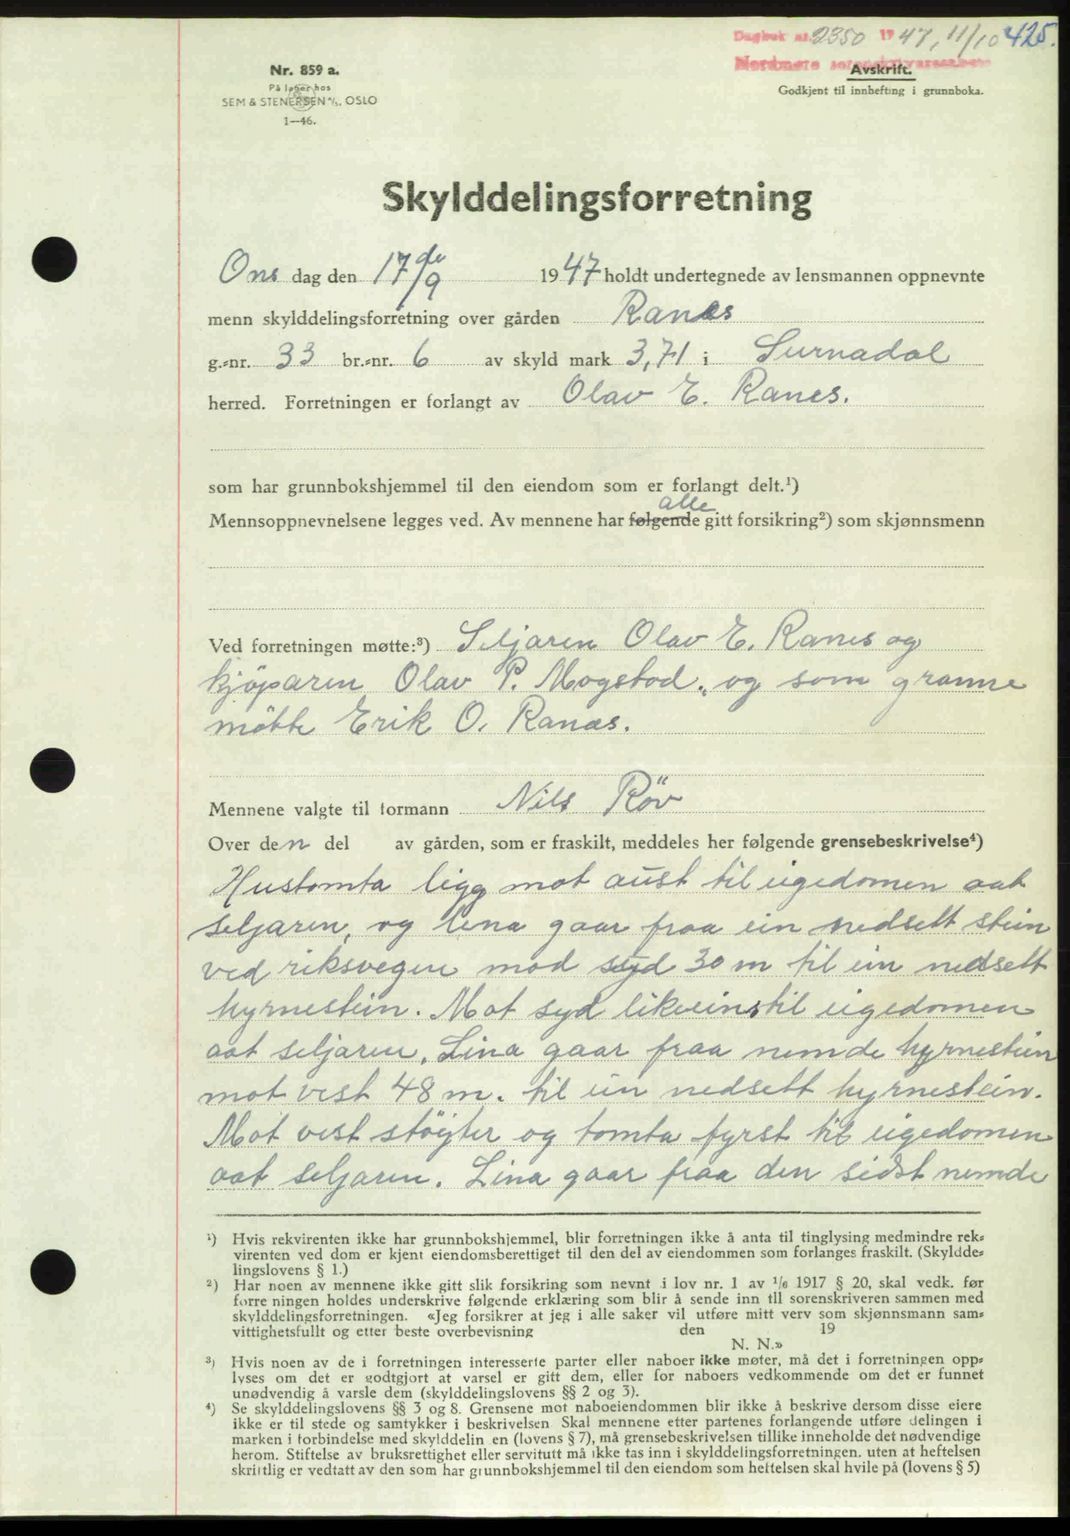 Dagbok nr. 2350 1947, 11/10 425.
Nordmøre sorenskriverembete
Nr. 859 a.
På lager hos
SEM & STENERSEN A/S. OSLO
1—46.
Avskrift.
Godkjent til innhefting i grunnboka.
Skylddelingsforretning
Ons dag den 17de/9 1947 holdt undertegnede av lensmannen oppnevnte
menn skylddelingsforretning over gården Ranes
g.-nr. 33 br.-nr. 6 av skyld mark 3,71 i Surnadal
herred. Forretningen er forlangt av Olav E. Ranes.
som har grunnbokshjemmel til den eiendom som er forlangt delt.¹)
alle
Mennsoppnevnelsene legges ved. Av mennene har følgende gitt forsikring²) som skjønnsmenn
Ved forretningen møtte:³) Seljaren Olav E. Ranes og
kjøparen Olav P. Mogstad, og som granne
møtte Erik O. Ranæs.
Mennene valgte til formann Nils Röv
Over den del av gården, som er fraskilt, meddeles her følgende grensebeskrivelse⁴)
Hustomta ligg mot aust til eigedomen aat
seljaren, og lina gaar fraa ein nedsett stein
ved riksvegen mod syd 30 m til ein nedsett
hyrnestein. Mot syd likeeins til eigedomen
aat seljaren. Lina gaar fraa nemde hyrnestein
mot vest 48 m. til ein nedsett hyrnestein.
Mot vest støyter og tomta fyrst til eigedomen
aat seljaren. Lina gaar fraa den sidst nemde
¹) Hvis rekvirenten ikke har grunnbokshjemmel, blir forretningen ikke å anta til tinglysing medmindre rek-
virenten ved dom er kjent eiendomsberettiget til den del av eiendommen som forlanges fraskilt. (Skyldde-
lingslovens § 1.)
²) Har noen av mennene ikke gitt slik forsikring som nevnt i lov nr. 1 av 1/6 1917 § 20, skal vedk. før
forre ningen holdes underskrive følgende erklæring som blir å sende inn til sorenskriveren sammen med
skylddelingsforretningen. «Jeg forsikrer at jeg i alle saker vil utføre mitt verv som skjønnsmann sam-
vittighetsfullt og etter beste overbevisning den 19
N. N.»
³) Hvis noen av de i forretningen interesserte parter eller naboer ikke møter, må det i forretningen opp-
lyses om det er godtgjort at varsel er gitt dem, eller for naboers vedkommende om det er funnet
unødvendig å varsle dem (skylddelingslovens §§ 2 og 3).
⁴) Se skylddelingslovens §§ 3 og 8. Grensene mot naboeiendommen blir ikke å beskrive dersom disse eiere
ikke er til stede og samtykker i beskrivelsen Skal mennene etter partenes forlangende utføre delingen i
marken i forbindelse med skylddelin en (lovens § 7), må grensebeskrivelsen tillike inneholde det nødvendige
herom. Stiftelse av bruksrettighet eller servitutt må ikke tas inn i skylddelingsforretningen. uten at heftelsen
skriftlig er vedtatt av den som har grunnbokshjemmel til den eiendom som heftelsen skal hvile på (lovens § 5)